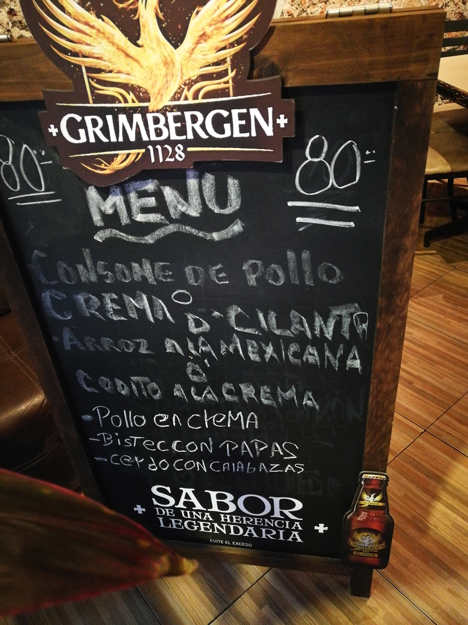 GRIMBERGEN
1128
80.- 80.-
MENU
CONSOME DE POLLO
O
CREMA D' CILANTRO
ARROZ A LA MEXICANA
O
CODITO A LA CREMA
- Pollo en CREMA
- BISTEC CON PAPAS
- CERDO CON CALABAZAS
SABOR
DE UNA HERENCIA
LEGENDARIA
EVITE EL EXCESO